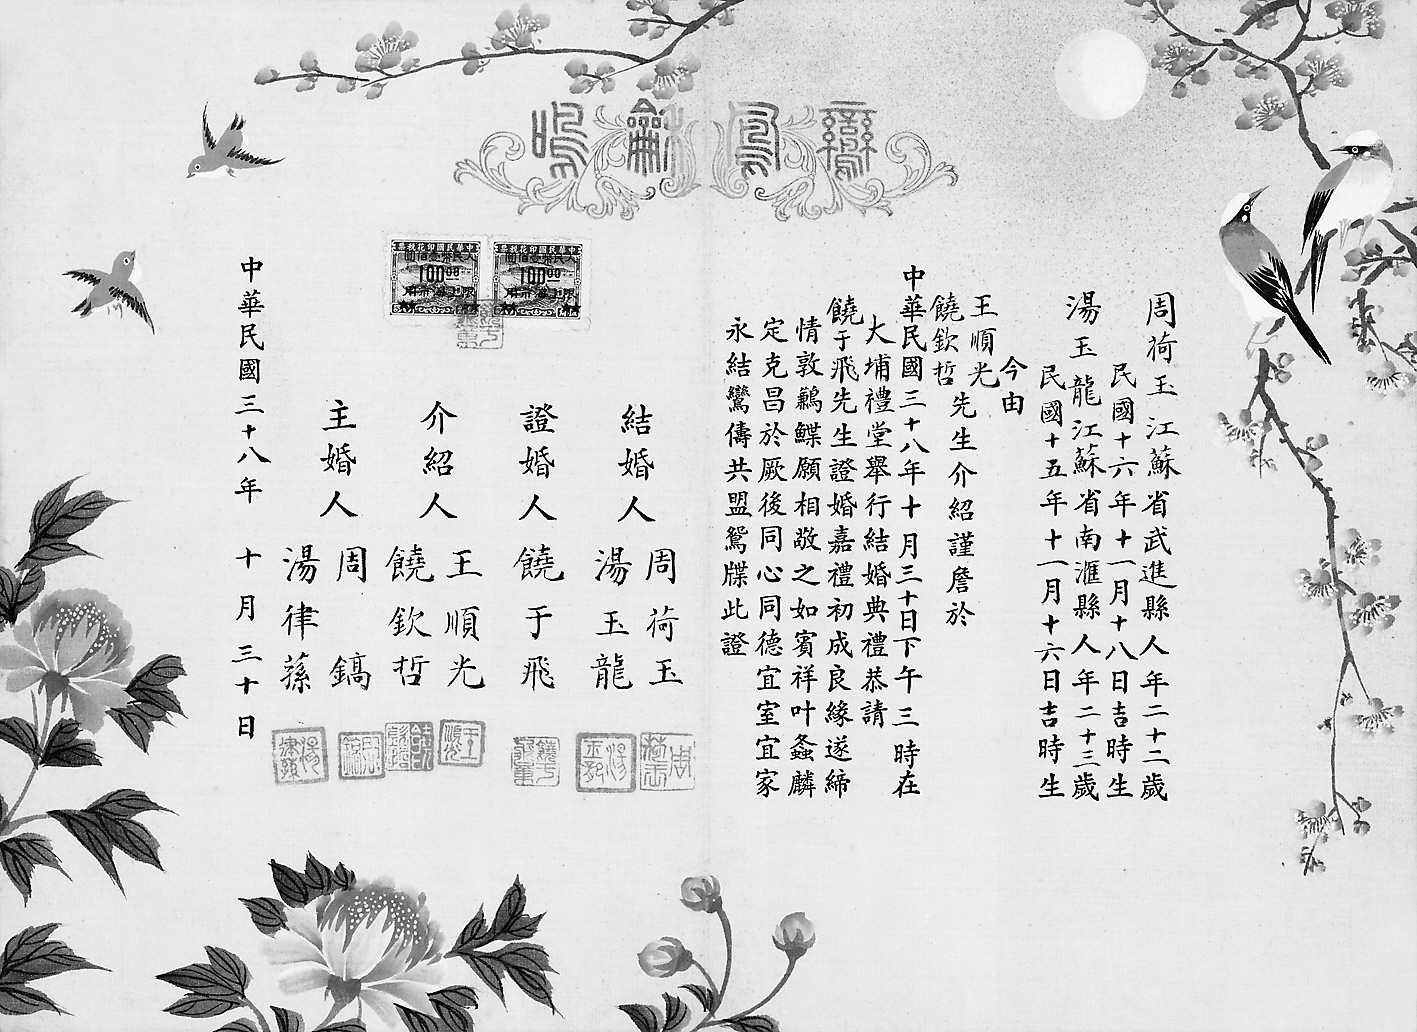 鸞鳳龢鳴
周荷玉江蘇省武進縣人年二十二歲
民國十六年十一月十八日吉時生
湯玉龍江蘇省南滙縣人年二十三歲
民國十五年十一月十六日吉時生
今由
王順光
饒欽哲
先生介紹謹詹於
中華民國三十八年十月三十日下午三時在
大埔禮堂舉行結婚典禮恭請
饒于飛先生證婚嘉禮初成良緣遂締
情敦鶼鰈願相敬之如賓祥叶螽麟
定克昌於厥後同心同德宜室宜家
永結鸞儔共盟鴛牒此證
結婚人
周荷玉
湯玉龍
證婚人
饒于飛
介紹人
王順光
饒欽哲
主婚人
周鎬
湯律蓀
中華民國三十八年十月三十日
中華民國印花稅票
人民幣壹佰圓
100.00
限上海市用
中華民國印花稅票
人民幣壹佰圓
100.00
限上海市用